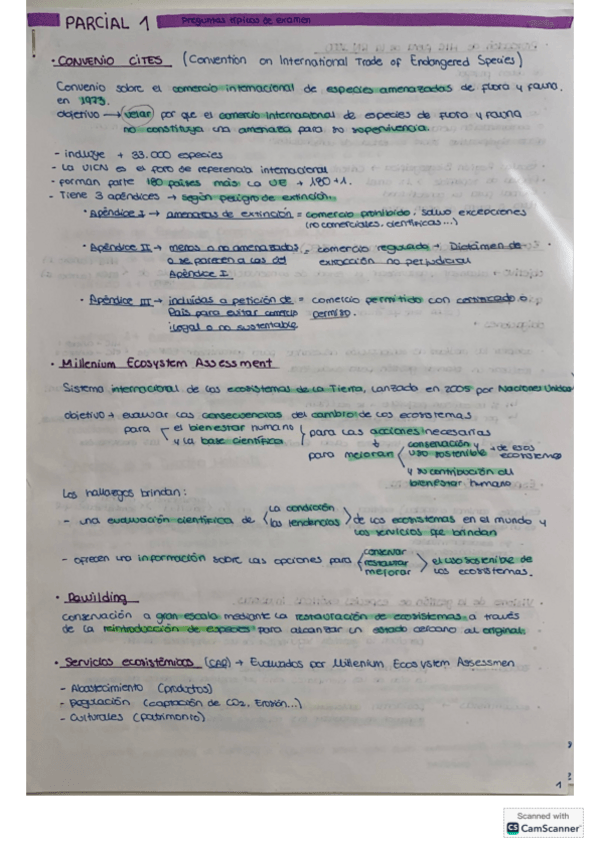 PARCIAL 1 Preguntas típicas de examen
• CONVENIO CITES (Convention on International Trade of Endangered Species)
Convenio sobre el comercio internacional de especies amenazadas de flora y fauna.
en 1973.
objetivo → velar por que el comercio internacional de especies de flora y fauna
no constituya una amenaza para su supervivencia.
- incluye + 33.000 especies
- La UICN es el foro de referencia internacional
- Forman parte 180 países más la UE → 180+1.
- Tiene 3 apéndices → según peligro de extinción.
• Apéndice I → amenazas de extinción = comercio prohibido, salvo excepciones
(no comerciales, científicas...)
• Apéndice II → menos o no amenazados = comercio regulado → Dictamen de
o se parecen a las del extracción no perjudicial
Apéndice I
• Apéndice III → incluidas a petición de = comercio permitido con certificado o
País para evitar comercio permiso.
ilegal o no sustentable
• Millenium Ecosystem Assessment
Sistema internacional de los ecosistemas de la Tierra, lanzado en 2005 por Naciones Unidas
objetivo → evaluar las consecuencias del cambio de los ecosistemas
para el bienestar humano para las acciones necesarias
y la base científica conservación y de esos
para mejorar uso sostenible ecosistemas
y su contribución al
bienestar humano
Los hallazgos brindan:
la condición
- una evaluación científica de las tendencias de los ecosistemas en el mundo y
los servicios que brindan
conservar
- ofrecen una información sobre las opciones para restaurar el uso sostenible de
mejorar los ecosistemas.
• Rewilding
conservación a gran escala mediante la restauración de ecosistemas a través
de la reintroducción de especies para alcanzar un estado cercano al original.
• Servicios ecosistémicos → Evaluados por Millenium Ecosystem Assessmen
- Abastecimiento (productos)
- Regulación (captación de CO2, Erosión...)
- Culturales (patrimonio)
1
Scanned with
CS CamScanner